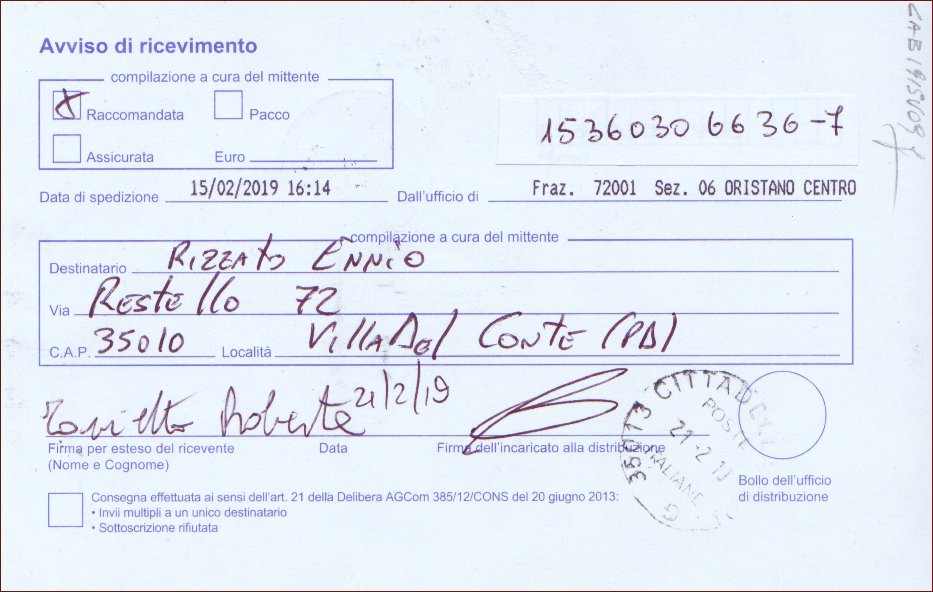 Avviso di ricevimento
compilazione a cura del mittente
X Raccomandata Pacco
Assicurata Euro
15360306636-7
Data di spedizione 15/02/2019 16:14 Dall'ufficio di Fraz. 72001 Sez. 06 ORISTANO CENTRO
compilazione a cura del mittente
Destinatario RIZZATO ENNIO
Via RESTELLO 72
C.A.P. 35010 Località VILLA DEL CONTE (PD)
Roberta 21/2/19
Firma per esteso del ricevente Data Firma dell'incaricato alla distribuzione
(Nome e Cognome)
Bollo dell'ufficio
di distribuzione
POSTE
ITALIANE
Consegna effettuata ai sensi dell'art. 21 della Delibera AGCom 385/12/CONS del 20 giugno 2013:
• Invii multipli a un unico destinatario
• Sottoscrizione rifiutata